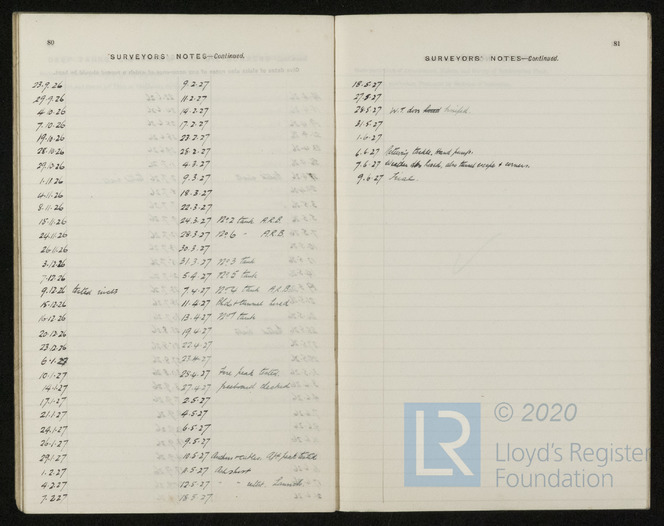 80
SURVEYORS' NOTES—Continued.
23.9.26
29.9.26
4.10.26
7.10.26
19.10.26
28.10.26
29.10.26
1.11.26
4.11.26
8.11.26
18.11.26
24.11.26
26.11.26
3.12.26
7.12.26
9.12.26 tested rivets
15.12.26
16.12.26
20.12.26
23.12.26
6.1.27
10.1.27
14.1.27
17.1.27
21.1.27
24.1.27
26.1.27
29.1.27
1.2.27
4.2.27
7.2.27
9.2.27
11.2.27
14.2.27
17.2.27
23.2.27
25.2.27
4.3.27
9.3.27
18.3.27
22.3.27
24.3.27 No 2 tank A.R.B.
28.3.27 No 6 - A.R.B.
30.3.27
31.3.27 No 3 tank
5.4.27 No 5 tank
7.4.27 No 4 tank A.R.B
11.4.27 Blds + tunnel tested
13.4.27 No 7 tank
19.4.27
22.4.27
23.4.27
25.4.27 Fore peak tested
27.4.27 freeboard checked
2.5.27
4.5.27
6.5.27
9.5.27
10.5.27 Anchors + cables. Aft peak tested
11.5.27
12.5.27 - - Launch.
16.5.27 -
81
SURVEYORS' NOTES—Continued.
18.5.27
27.5.27
28.5.27 W.T. doors
31.5.27
1.6.27
6.6.27 Steering trials, hand pumps.
7.6.27 Weather dks hosed, also tunnel escape +
9.6.27 Trial.
© 2020
LR
Lloyd's Register
Foundation